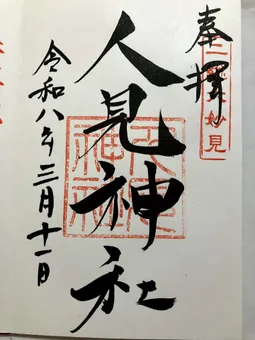 奉拝
人見神社
令和八年三月十一日
人見神社
妙見